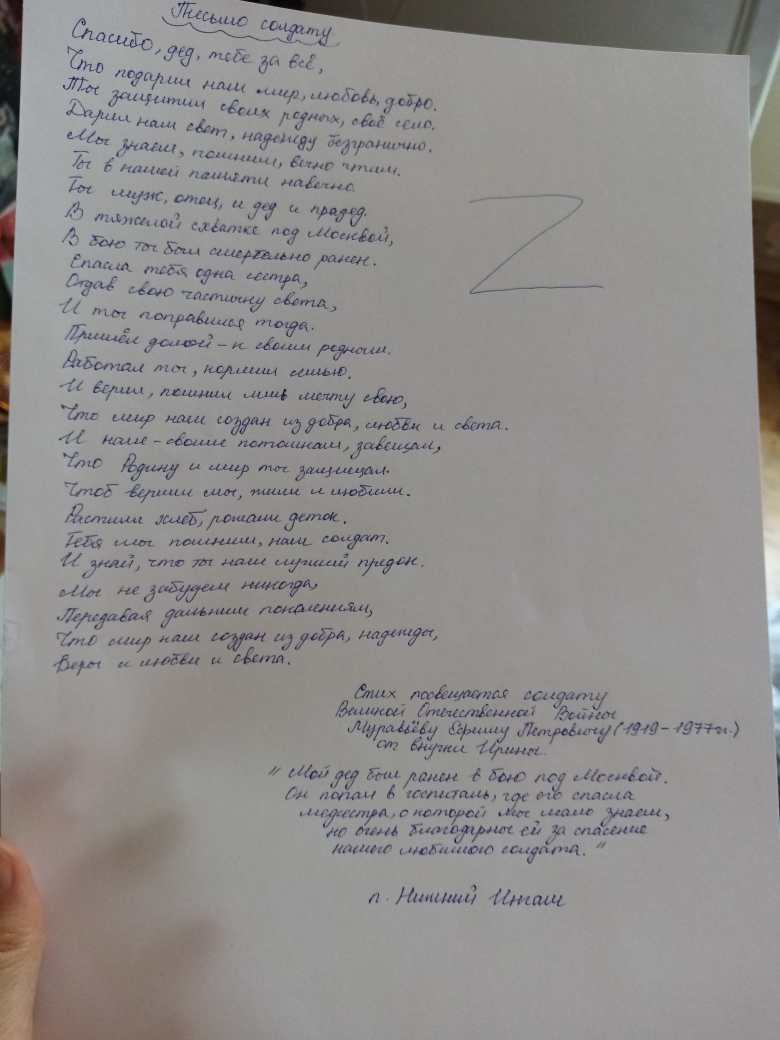 Письмо солдату
Спасибо, дед, тебе за всё,
Что подарил нам мир, любовь, добро.
Ты защитил своих родных, своё село.
Дарил нам свет, надежду безгранично.
Мы знаем, помним, вечно чтим.
Ты в нашей памяти навечно.
Ты муж, отец, и дед и прадед.
В тяжелой схватке под Москвой,
В бою ты был смертельно ранен.
Спасла тебя одна сестра,
Отдав свою частичку света,
И ты поправился тогда.
Пришёл домой - к своим родным.
Работал ты, кормил семью.
И верил, помнил мысль мечту свою,
Что мир наш создан из добра, любви и света.
И нам - своим потомкам, завещал,
Что Родину и мир ты защищал.
Чтоб верили мы, жили и любили.
Растили хлеб, рожали деток.
Тебя мы помним, наш солдат.
И знай, что ты наш лучший предок.
Мы не забудем никогда,
Передавая дальним поколениям,
Что мир наш создан из добра, надежды,
Веры и любви и света.
Z
Стих посвещается солдату
Великой Отечественной Войны
Муравьёву Ефиму Петровичу (1919-1977 гг.)
от внучки Ирины.
"Мой дед был ранен в бою под Москвой.
Он попал в госпиталь, где его спасла
медсестра, о которой мы мало знаем,
но очень благодарны ей за спасение
нашего любимого солдата."
п. Нижний Ингаш